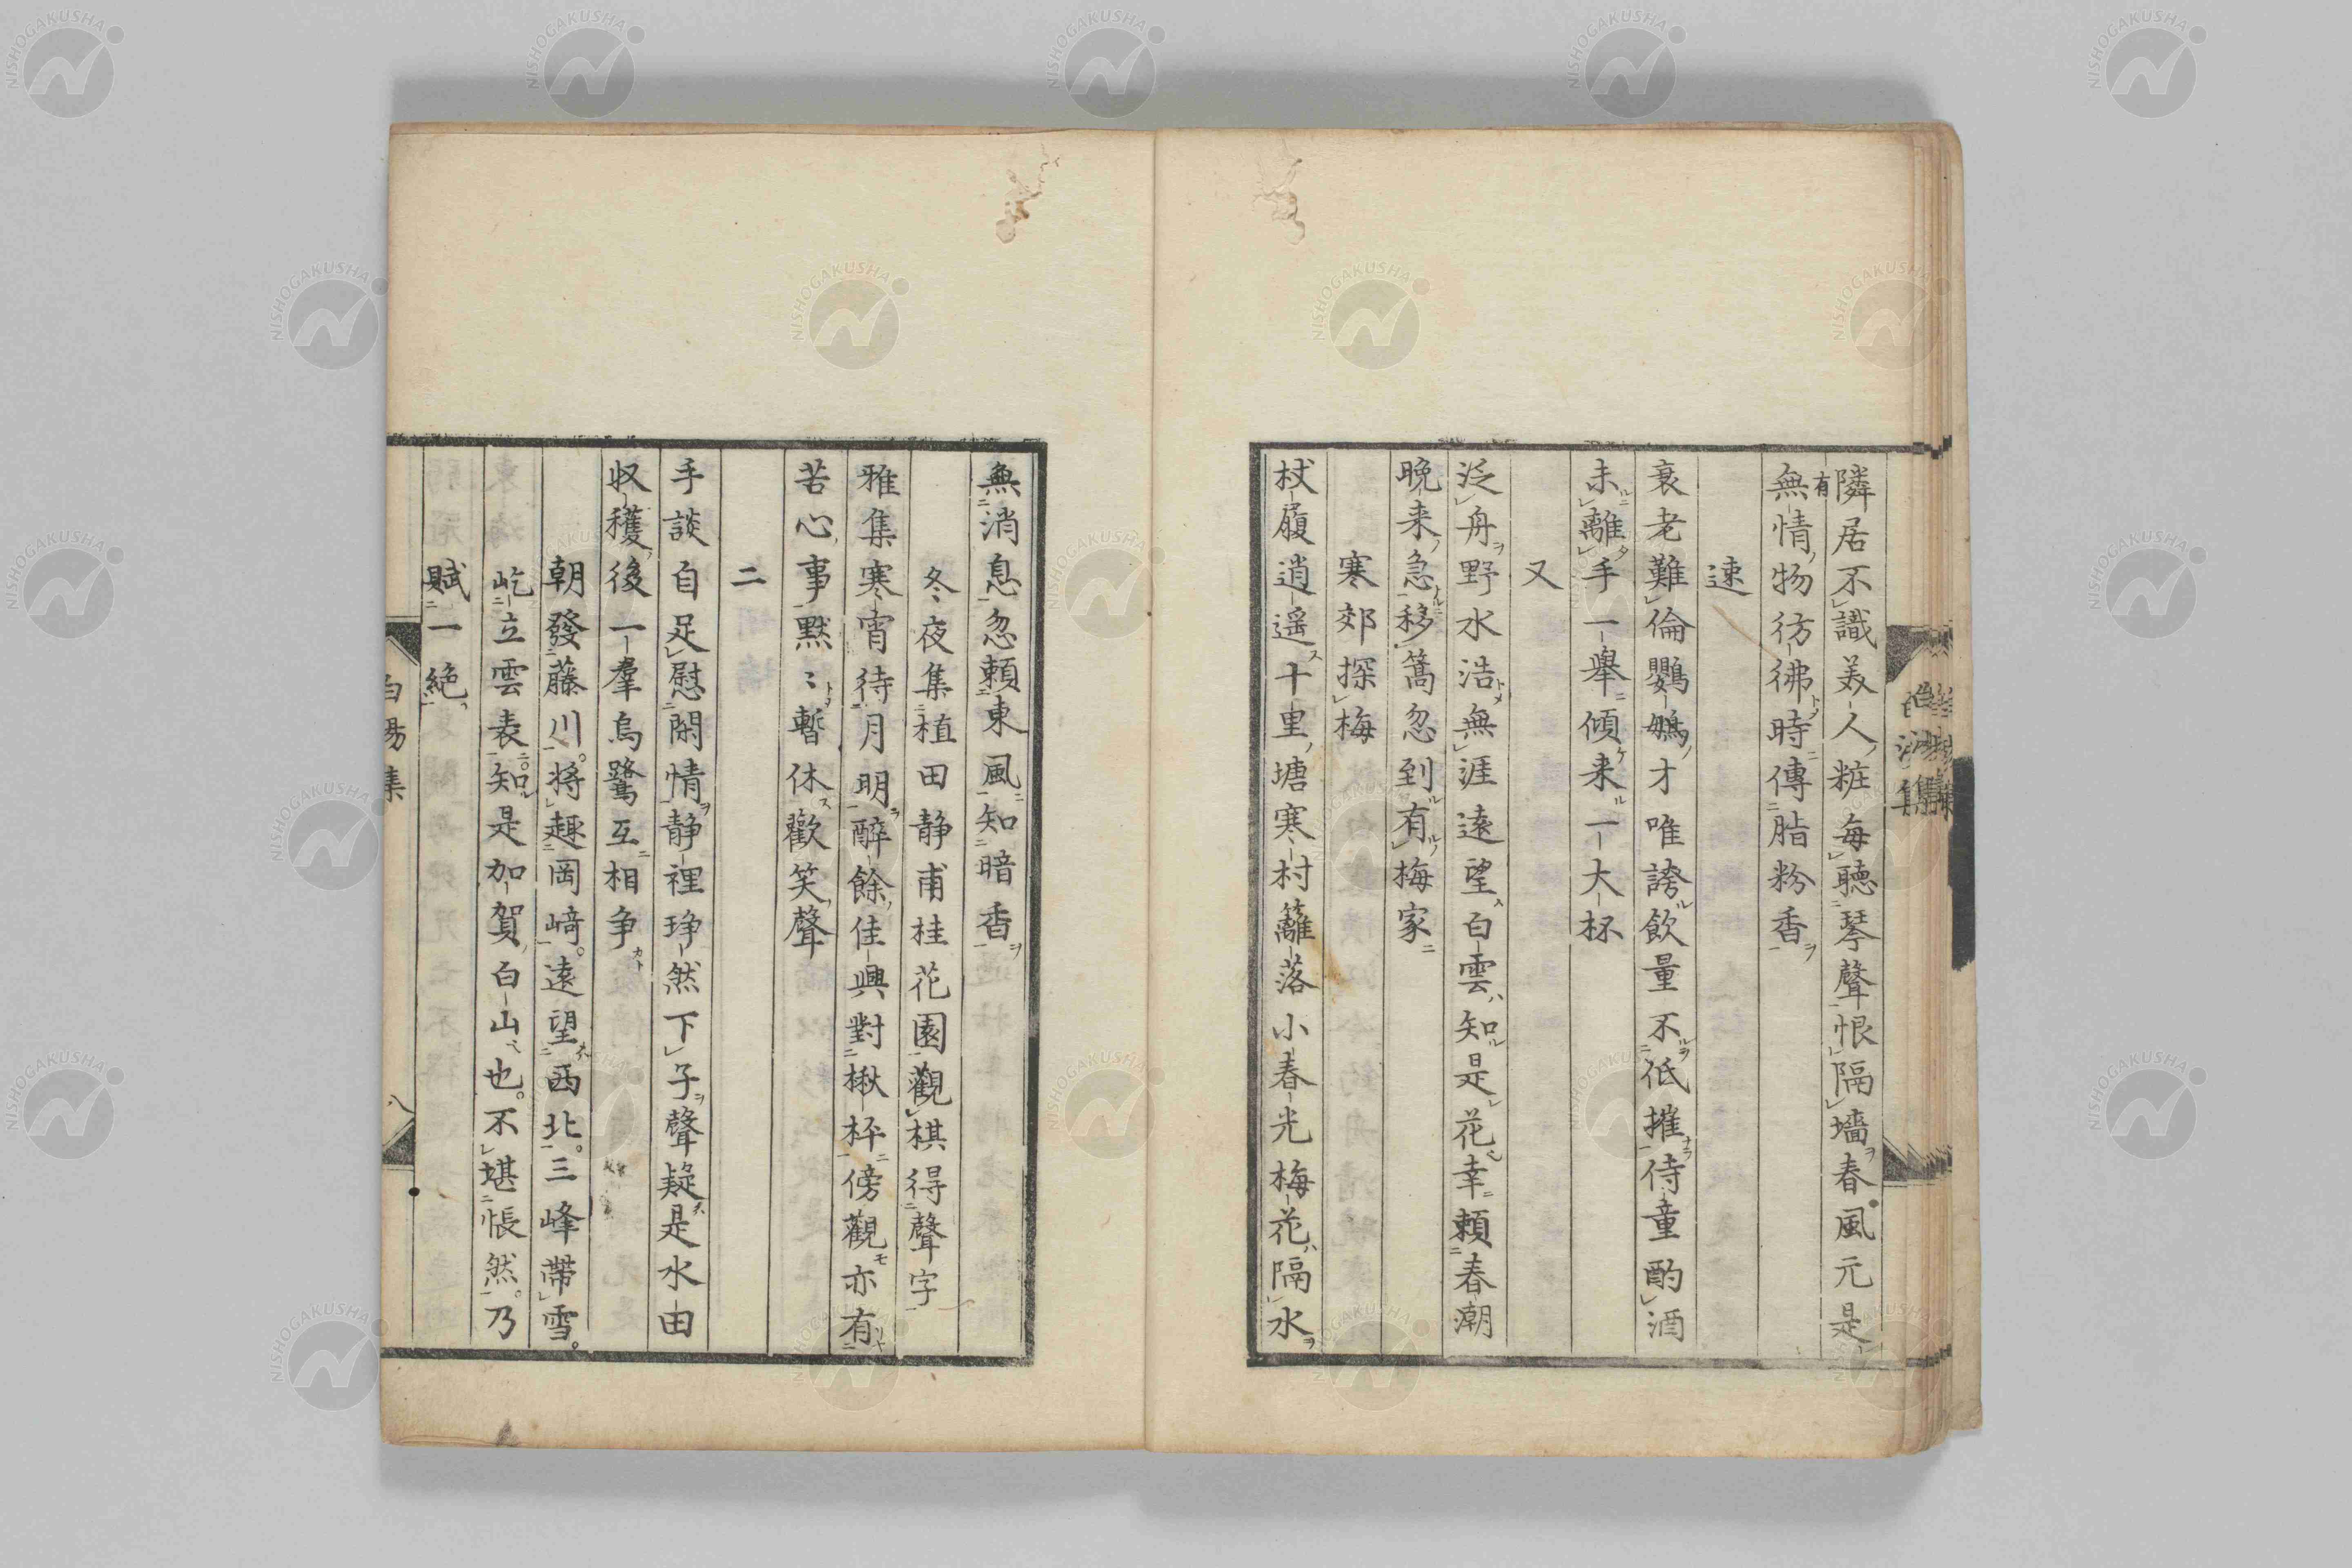 隣居不識美人粧每聽琴聲恨隔墻春風元是
有
無情物彷彿時傳脂粉香
速
衰老難倫鸚鵡才唯誇飲量不低摧侍童酌酒
未離手一舉傾来一大杯
又
泛舟野水浩無涯遠望白雲知是花幸頼春潮
晩来急移篙忽到有梅家
寒郊探梅
杖履逍遥十里塘寒村籬落小春光梅花隔水
無消息忽頼東風知暗香
冬夜集植田静甫桂花園觀棋得聲字
雅集寒宵待月明醉餘佳興對楸枰傍觀亦有
苦心事黙〻暫休歡笑聲
二
手談自足慰閑情静裡琤然下子聲疑是水田
収穫後一羣烏鷺互相争
朝發藤川。将趣岡﨑。遠望西北。三峰帶雪。
屹立雲表。知是加賀白山也。不堪悵然。乃
賦一絶
白湯集
八
NISHOGAKUSHA